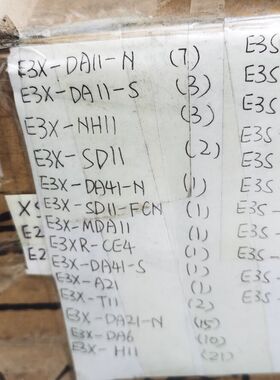 E3X-DA11-N (7)
E3X-DA11-S (3)
E3X-NH11 (3)
E3X-SD11 (2)
E3X-DA41-N (1)
E3X-SD11-FCN (1)
E3X-MDA11 (1)
E3XR-CE4 (1)
E3X-DA41-S (1)
E3X-A21 (1)
E3X-T11 (2)
E3X-DA21-N (15)
E3X-DA6 (10)
E3X-H11 (21)
E3S
E3S
E3S
E3S
E3S-
E3S-
E3S-
E3S-
E3S-
X
E2
E2